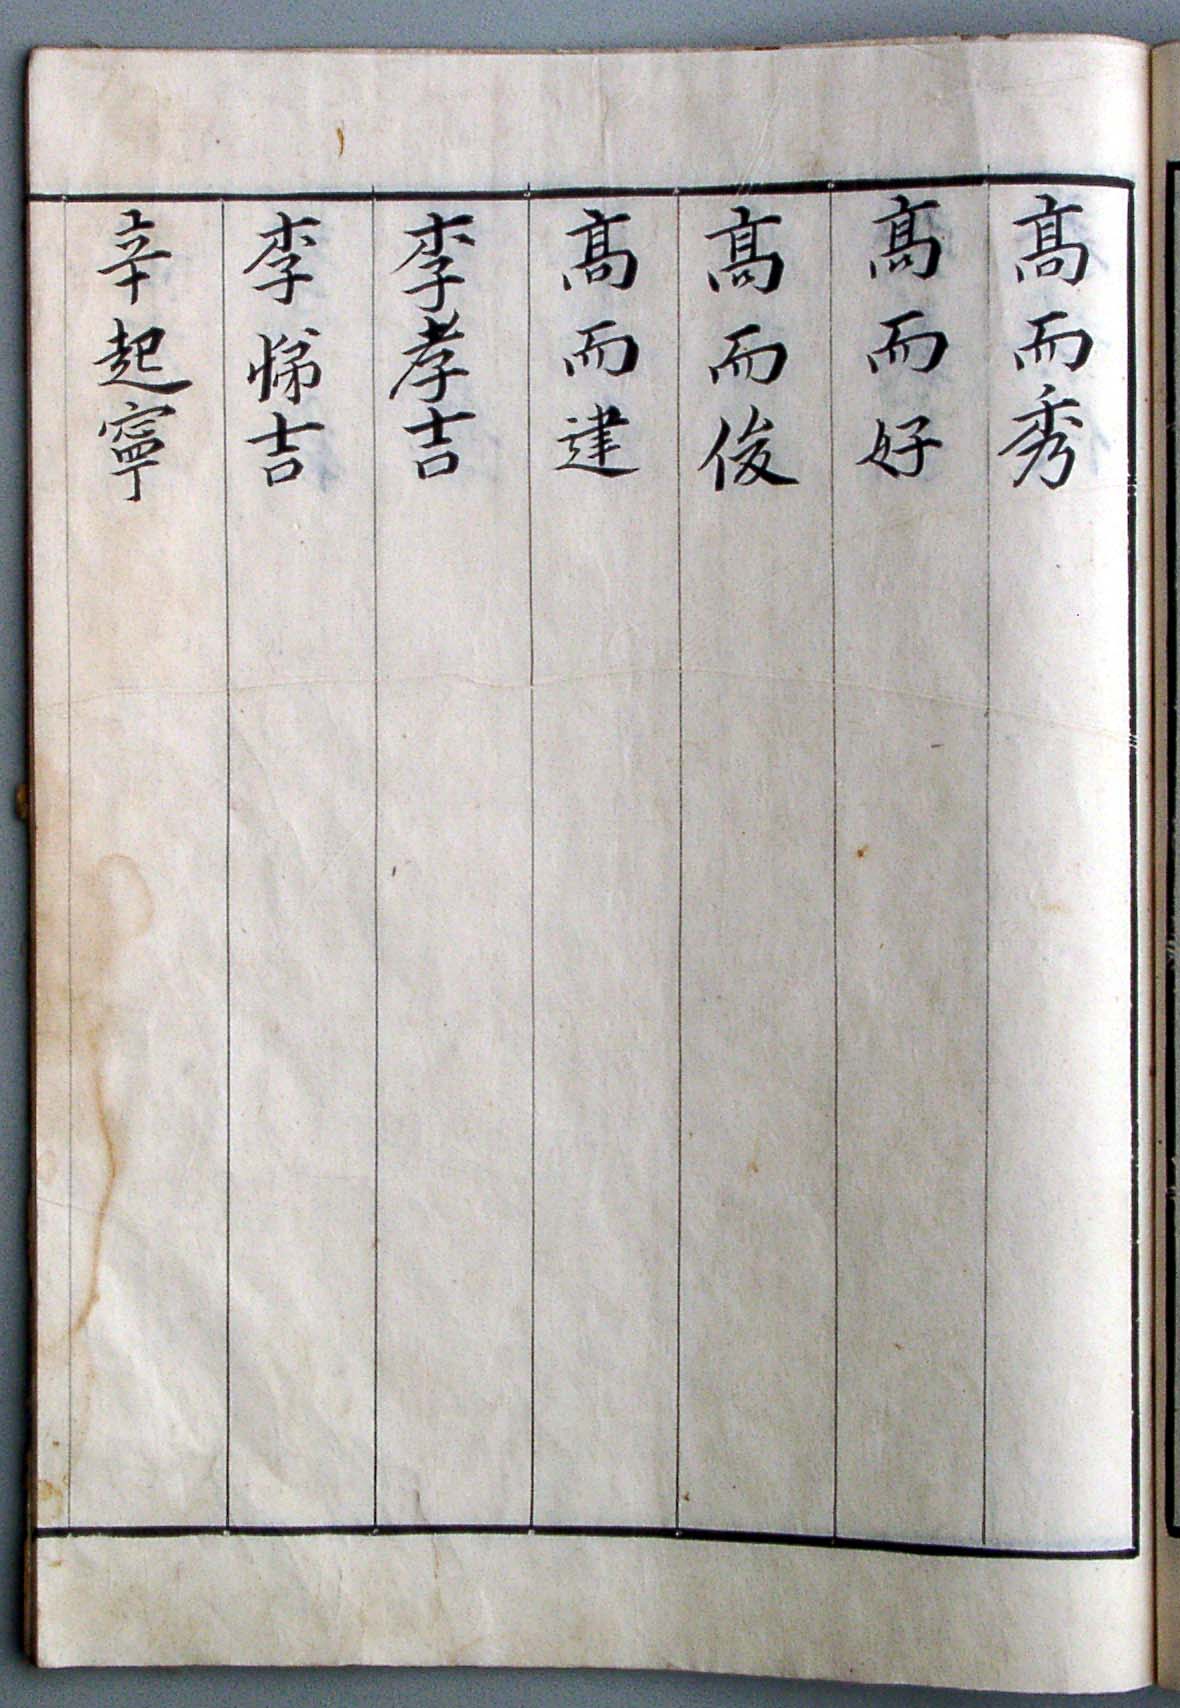 髙而秀
髙而好
髙而俊
髙而建
李孝吉
李悌吉
辛起寧